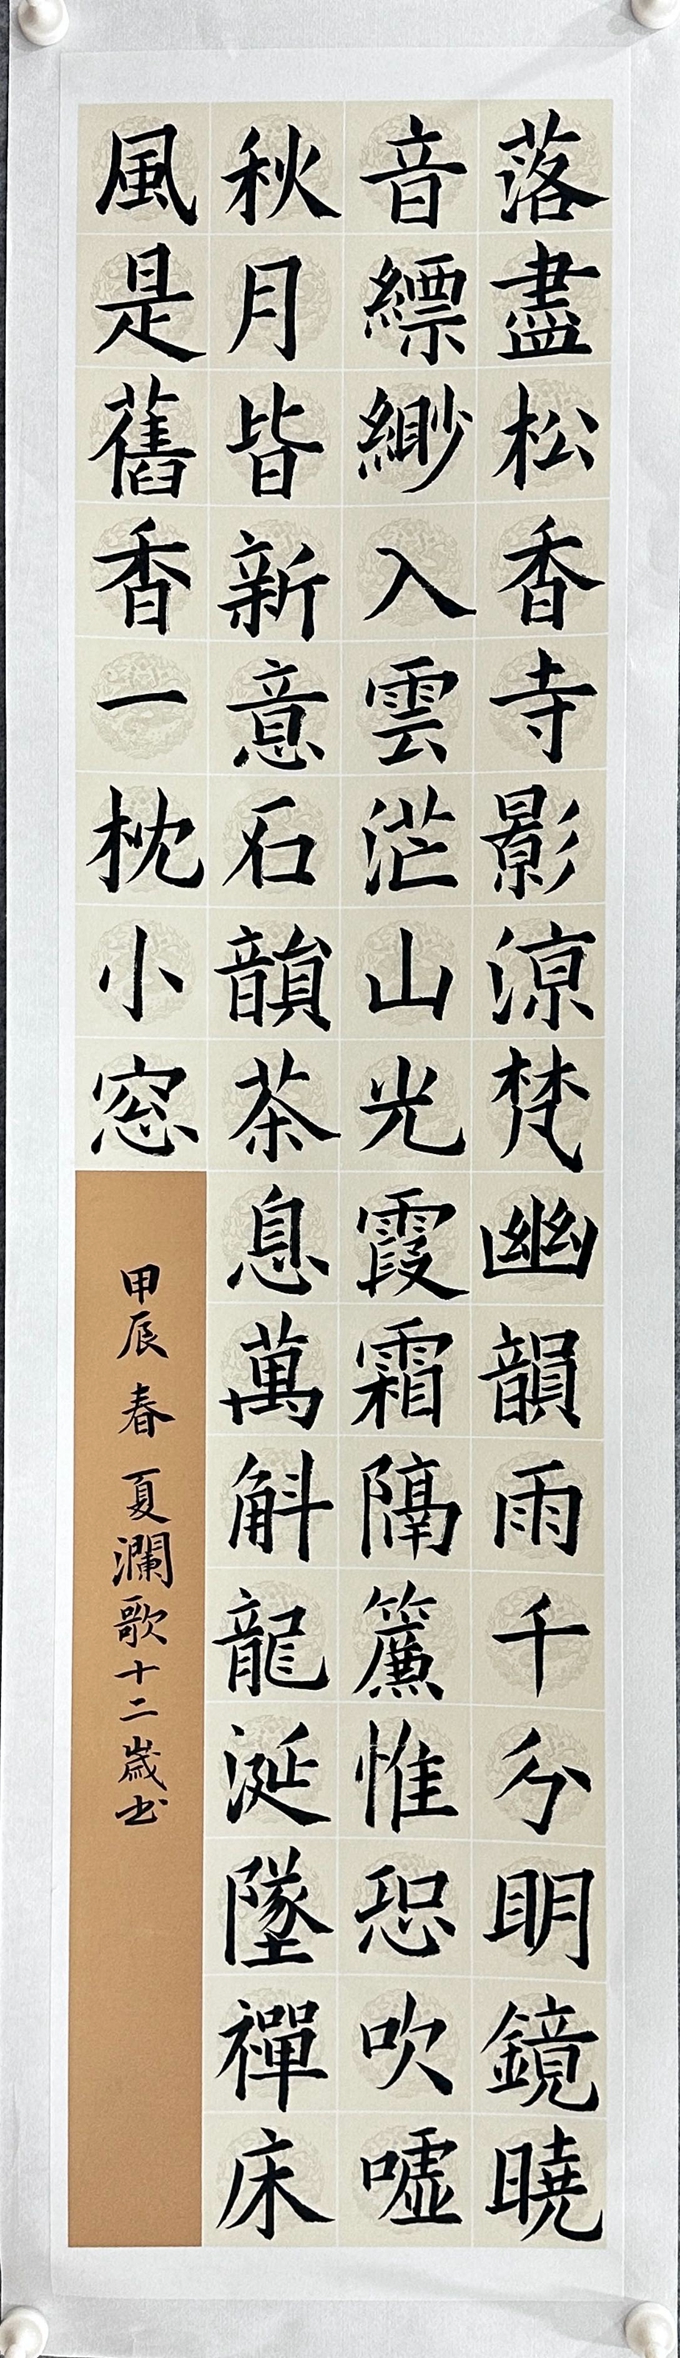 落盡松香寺影涼梵幽韻雨千分明鏡曉
音縹緲入雲茫山光霞霜隔簾惟恐吹噓
秋月皆新意石韻茶息萬斛龍涎墜禪床
風是舊香一枕小窓
甲辰春夏瀾歌十二歲书